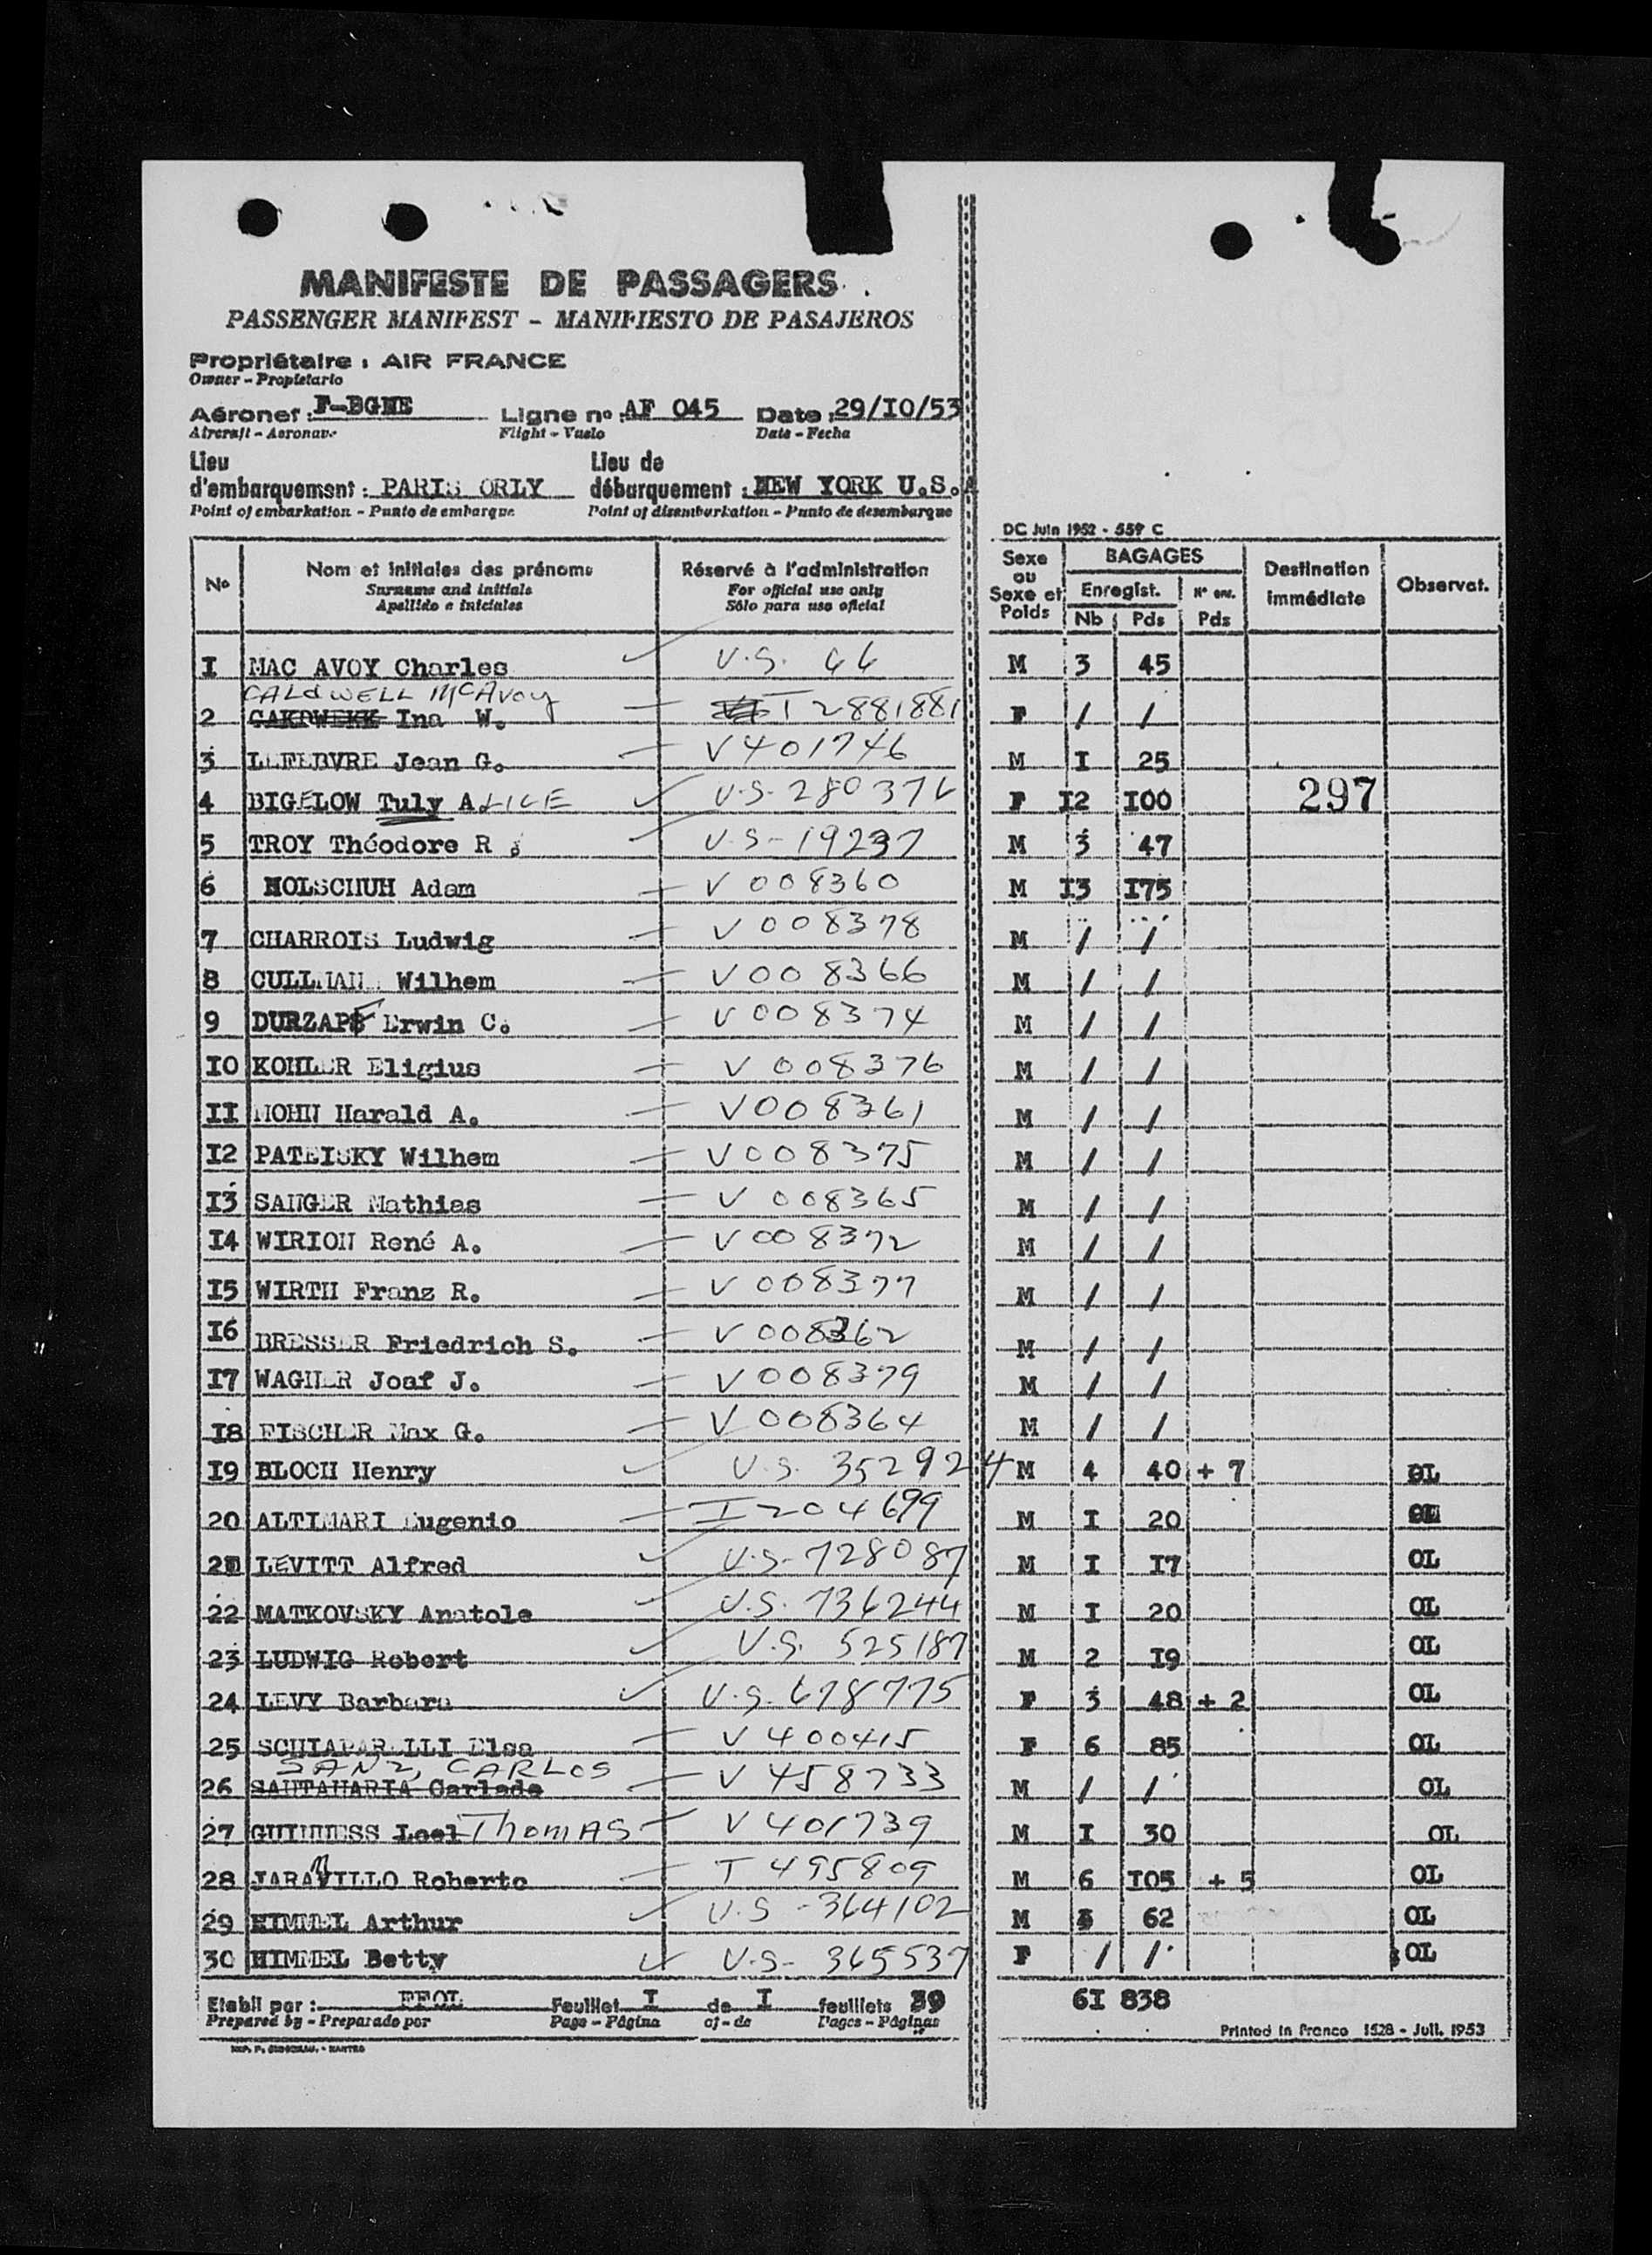 MANIFESTE DE PASSAGERS
PASSENGER MANIFEST – MANIFIESTO DE PASAJEROS
Propriétaire : AIR FRANCE
Owner – Propietario
Aéronef : F-BGNE Ligne no : AF 045 Date : 29/I0/53
Aircraft – Aeronave Flight – Vuelo Date – Fecha
Lieu d'embarquement : PARIS ORLY Lieu de débarquement : NEW YORK U.S.A
Point of embarkation – Punto de embarque Point of disembarkation – Punto de desembarque
DC Juin 1952 - 559 C
No Nom et initiales des prénoms Réservé à l'administration Sexe ou Sexe et Poids BAGAGES Destination immédiate Observat.
Surname and initials For official use only Enregist. N° enr.
Apellido e iniciales Sólo para uso oficial Nb Pds Pds
I MAC AVOY Charles V.S. 66 M 3 45
CALdWELL McAvoy
2 CAKDWEKK Ina W. I 2881881 F / /
3 LEFEBVRE Jean G. V401746 M I 25
4 BIGELOW Tuly ALICE U.S- 280376 F I2 I00 297
5 TROY Théodore R. U.S- 19237 M 3 47
6 HOLSCHUH Adam V 008360 M I3 I75
7 CHARROIS Ludwig V 008378 M / /
8 CULLMANN Wilhem V008366 M / /
9 DURZAPF Erwin C. V008374 M / /
I0 KOHLER Eligius V 008376 M / /
II MOHN Harald A. V008361 M / /
I2 PATEISKY Wilhem V008375 M / /
I3 SANGER Mathias V 008365 M / /
I4 WIRION René A. V008372 M / /
I5 WIRTH Franz R. V 008377 M / /
I6 BRESSER Friedrich S. V 008362 M / /
I7 WAGNER Joaf J. V008379 M / /
I8 FISCHER Max G. V 008364 M / /
I9 BLOCH Henry U.S. 352924 M 4 40 + 7 OL
20 ALTIMARI Eugenio I204699 M I 20 OL
2I LEVITT Alfred U.S- 728087 M I I7 OL
22 MATKOVSKY Anatole U.S. 736244 M I 20 OL
23 LUDWIG Robert U.S. 525187 M 2 I9 OL
24 LEVY Barbara U.S. 678775 F 3 48 + 2 OL
25 SCHIAPARELLI Elsa V 400415 F 6 85 OL
SANZ, CARLOS
26 SANTAMARIA Carlade V 458733 M / / OL
27 GUINNESS Loel Thomas V 401739 M I 30 OL
28 JARAVILLO Roberto T 495809 M 6 I05 + 5 OL
29 HIMMEL Arthur U.S - 364102 M 3 62 OL
30 HIMMEL Betty U.S- 365537 F / / OL
Etabli par : Feuillet I de I feuillets 39 6I 838
Prepared by – Preparado por Page – Página of – de Pages – Páginas
Printed in France 1528 - Juil. 1953